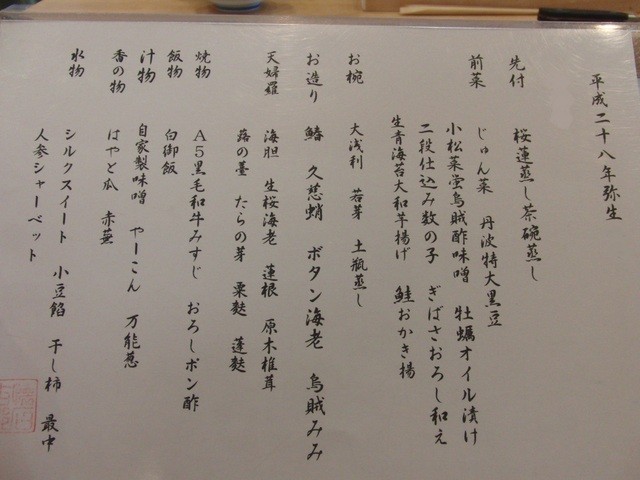 平成二十八年弥生
先付　桜蓮蒸し茶碗蒸し
前菜　じゅん菜　丹波特大黒豆
小松菜蛍烏賊酢味噌　牡蠣オイル漬け
二段仕込み数の子　ぎばさおろし和え
生青海苔大和芋揚げ　鮭おかき揚
お椀　大浅利　若芽　土瓶蒸し
お造り　鰆　久慈蛸　ボタン海老　烏賊みみ
天婦羅　海胆　生桜海老　蓮根　原木椎茸
蕗の薹　たらの芽　粟麩　蓬麩
焼物　A5黒毛和牛みすじ　おろしポン酢
飯物　白御飯
汁物　自家製味噌　やーこん　万能葱
香の物　はやと瓜　赤蕪
水物　シルクスイート　小豆餡　干し柿　最中
人参シャーベット